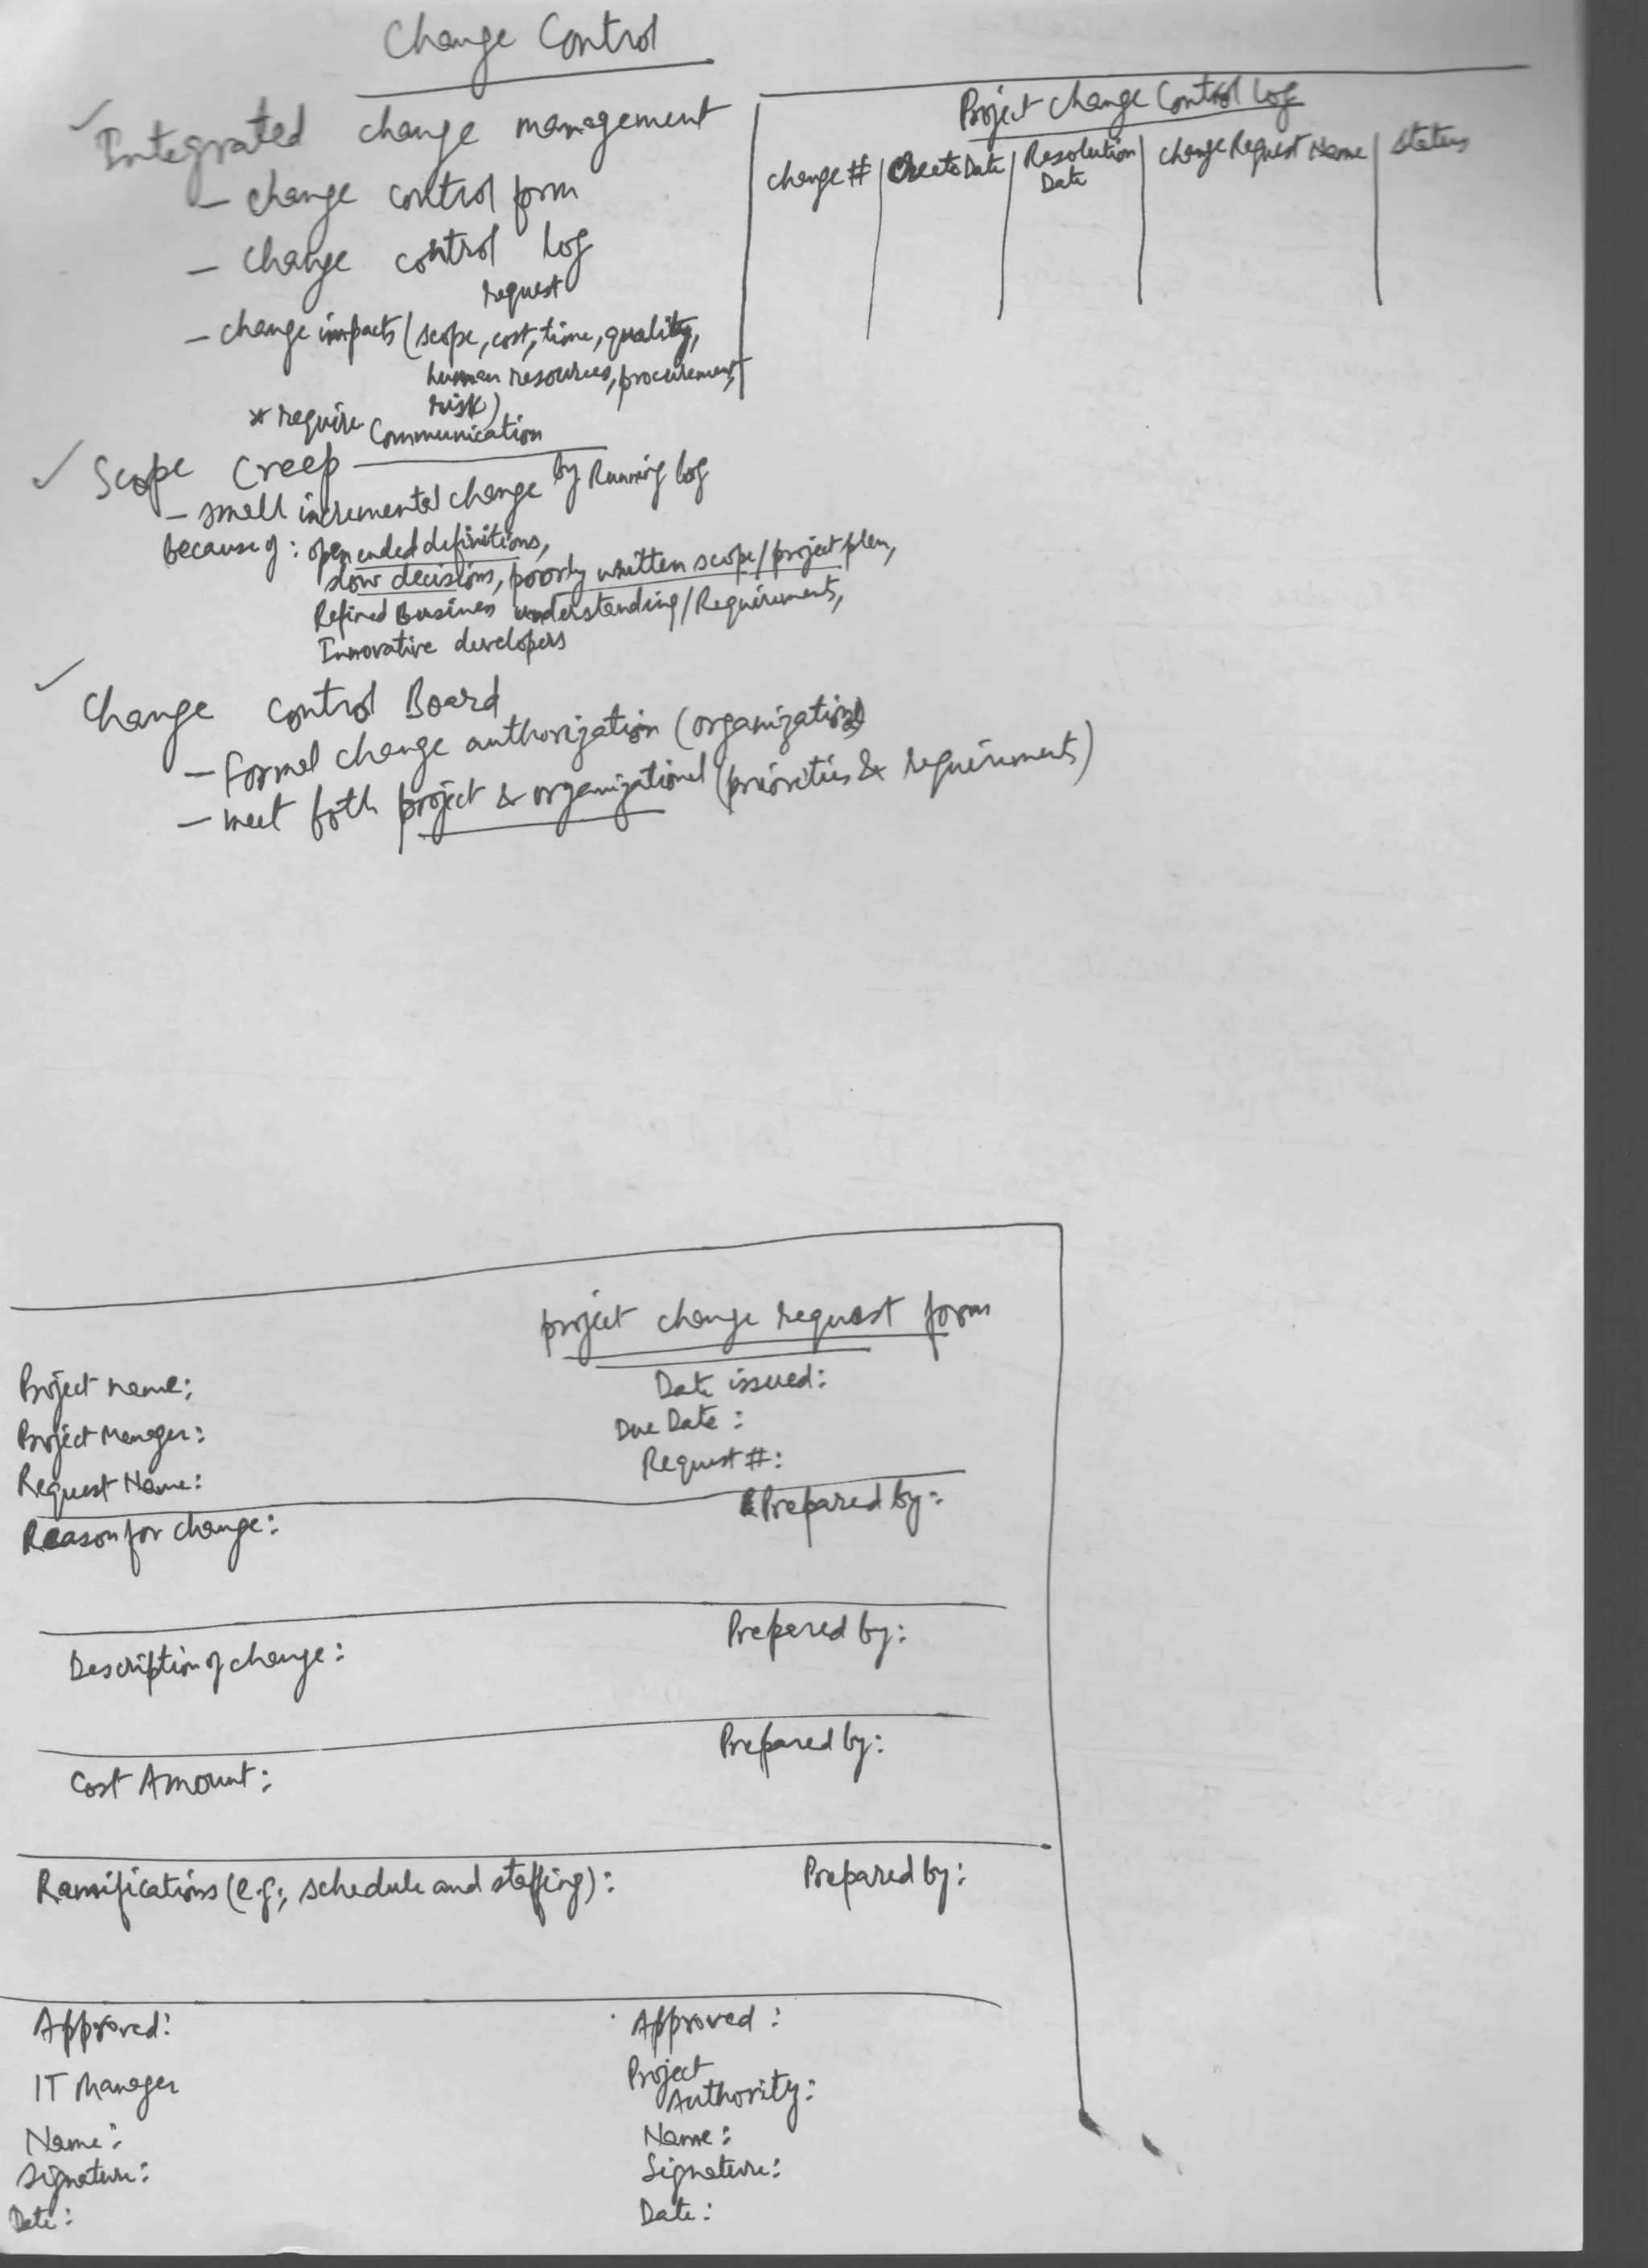 Change Control
Integrated change management
- change control form
- change control log
request
- change impacts (scope, cost, time, quality,
human resources, procurement,
risk)
* require Communication
Scope Creep
- small incremental change by Running log
because of : open ended definitions,
slow decisions, poorly written scope/project plan,
Refined Business understanding/Requirements,
Innovative developers
Change Control Board
- Formal change authorization (organization)
- meet both project & organizational (priorities & requirements)
Project Change Control Log
change # | Create Date | Resolution Date | change Request Name | Status
project change request form
Project name:
Date issued:
Project Manager:
Due Date :
Request Name:
Request #:
Reason for change:
Prepared by:
Description of change:
Prepared by:
Cost Amount:
Prepared by:
Ramifications (e.g., schedule and staffing):
Prepared by:
Approved:
IT Manager
Name:
Signature:
Date:
Approved :
Project
Authority:
Name:
Signature:
Date: